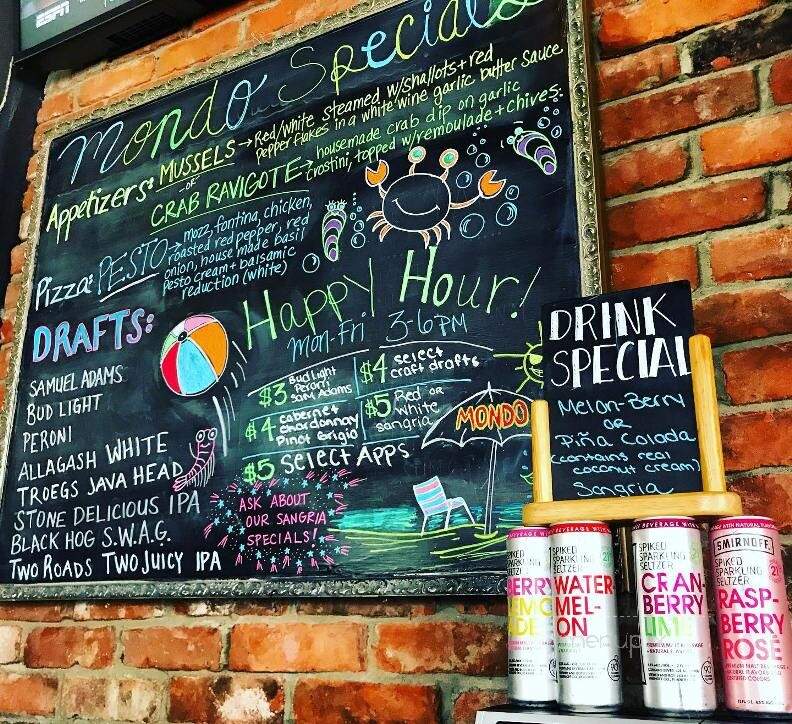 ESPN
Mondo Specials
Appetizers: MUSSELS → Red/white steamed w/shallots + red
pepper flakes in a white wine garlic butter sauce
OR
CRAB RAVIGOTE → housemade crab dip on garlic
crostini, topped w/remoulade + chives.
Pizza: PESTO → mozz, fontina, chicken,
roasted red pepper, red
onion, house made basil
pesto cream + balsamic
reduction (white)
Happy Hour!
Mon-Fri 3-6PM
$3 Bud light
Peroni
Sam Adams
$4 Select
craft drafts
$4 cabernet
chardonnay
Pinot Grigio
$5 Red OR
White
sangria
$5 Select Apps
MONDO
ASK ABOUT
OUR SANGRIA
SPECIALS!
DRAFTS:
SAMUEL ADAMS
BUD LIGHT
PERONI
ALLAGASH WHITE
TROEGS JAVA HEAD
STONE DELICIOUS IPA
BLACK HOG S.W.A.G.
TWO ROADS TWO JUICY IPA
DRINK
SPECIAL
Melon-Berry
OR
Piña Colada
(contains real
coconut cream)
Sangria
SPIKED
SPARKLING
SELTZER
BERRY
LEMO
ADE
SPIKED
SPARKLING
SELTZER
WATER-
MEL-
ON
SPIKED
SPARKLING
SELTZER
CRAN-
BERRY
LIME
SMIRNOFF
SPIKED
SPARKLING
SELTZER
RASP-
BERRY
ROSÉ